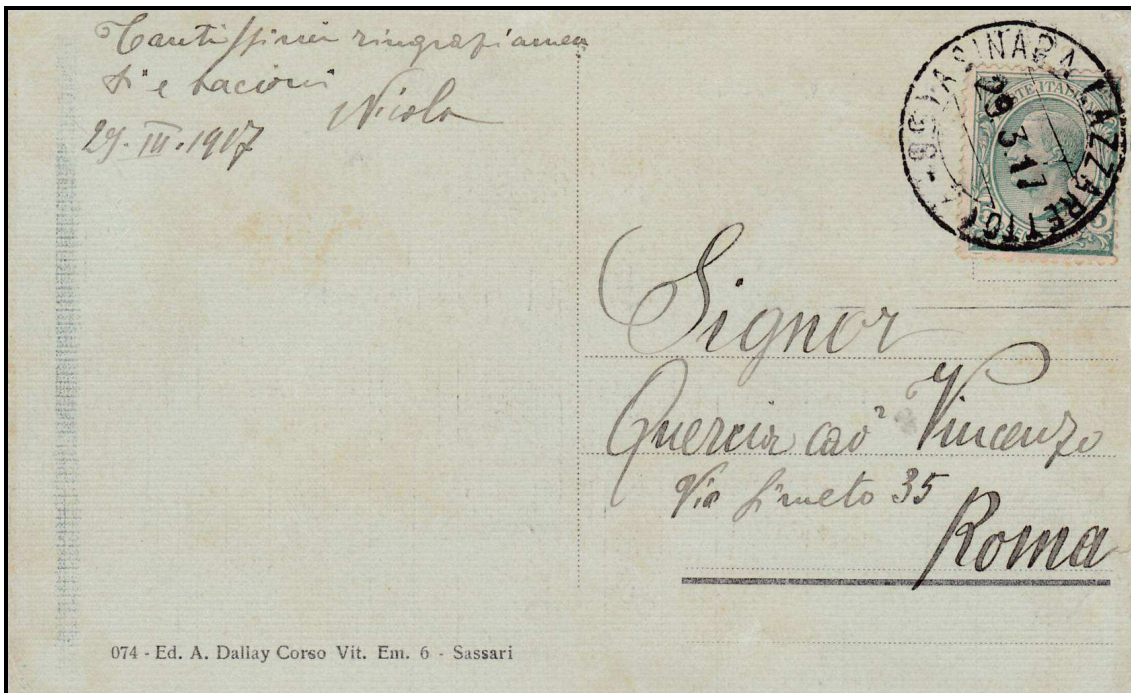 Tantissimi ringraziamen
ti e bacioni
Nicola
29. III. 1917
ASINARA LAZZARETTO
29 3.17
POSTE ITALI
5
Signor
Quercia cav Vincenzo
Via Simeto 35
Roma
074 - Ed. A. Dallay Corso Vit. Em. 6 - Sassari